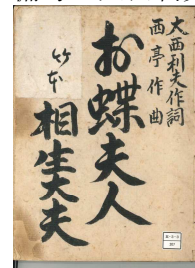 大西利夫作詞
西亭作曲
お蝶夫人
竹本
相生大夫